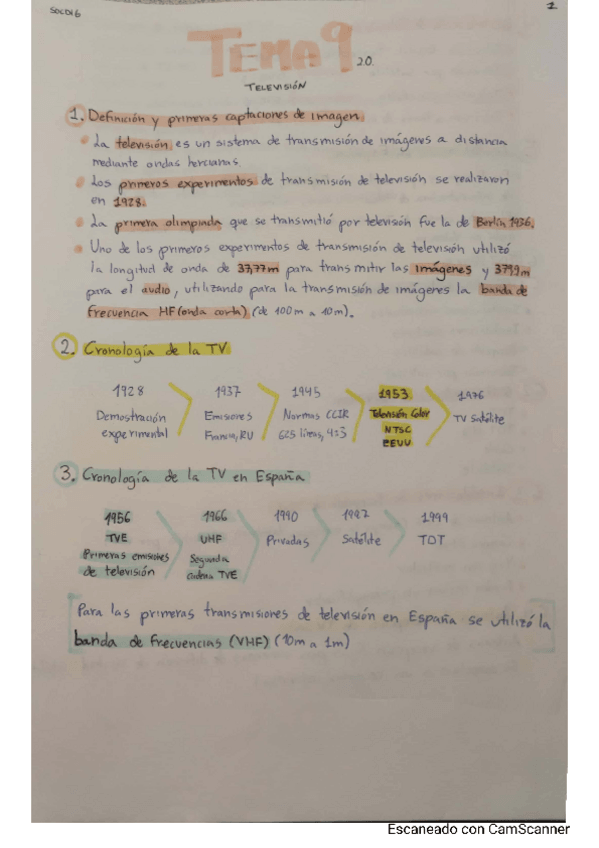 SOCDI6
1
TEMA 9
20.
TELEVISIÓN
1. Definición y primeras captaciones de imagen
• La televisión es un sistema de transmisión de imágenes a distancia
mediante ondas hercianas.
• Los primeros experimentos de transmisión de televisión se realizaron
en 1928.
• La primera olimpiada que se transmitió por televisión fue la de Berlín 1936.
• Uno de los primeros experimentos de transmisión de televisión utilizó
la longitud de onda de 37,77m para transmitir las imágenes y
para el audio, utilizando para la transmisión de imágenes la banda de
frecuencia HF (onda corta) (de 100m a 10m).
2. Cronología de la TV
1928
Demostración
experimental
1937
Emisores
Francia, RU
1945
Normas CCIR
625 líneas, 4:3
1953
Televisión Color
NTSC
EEUU
1976
TV Satélite
3. Cronología de la TV en España
1956
TVE
Primeras emisiones
de televisión
1966
UHF
Segunda
cadena TVE
1990
Privadas
1997
Satélite
1999
TDT
Para las primeras transmisiones de televisión en España se utilizó la
banda de frecuencias (VHF) (10m a 1m)
Escaneado con CamScanner